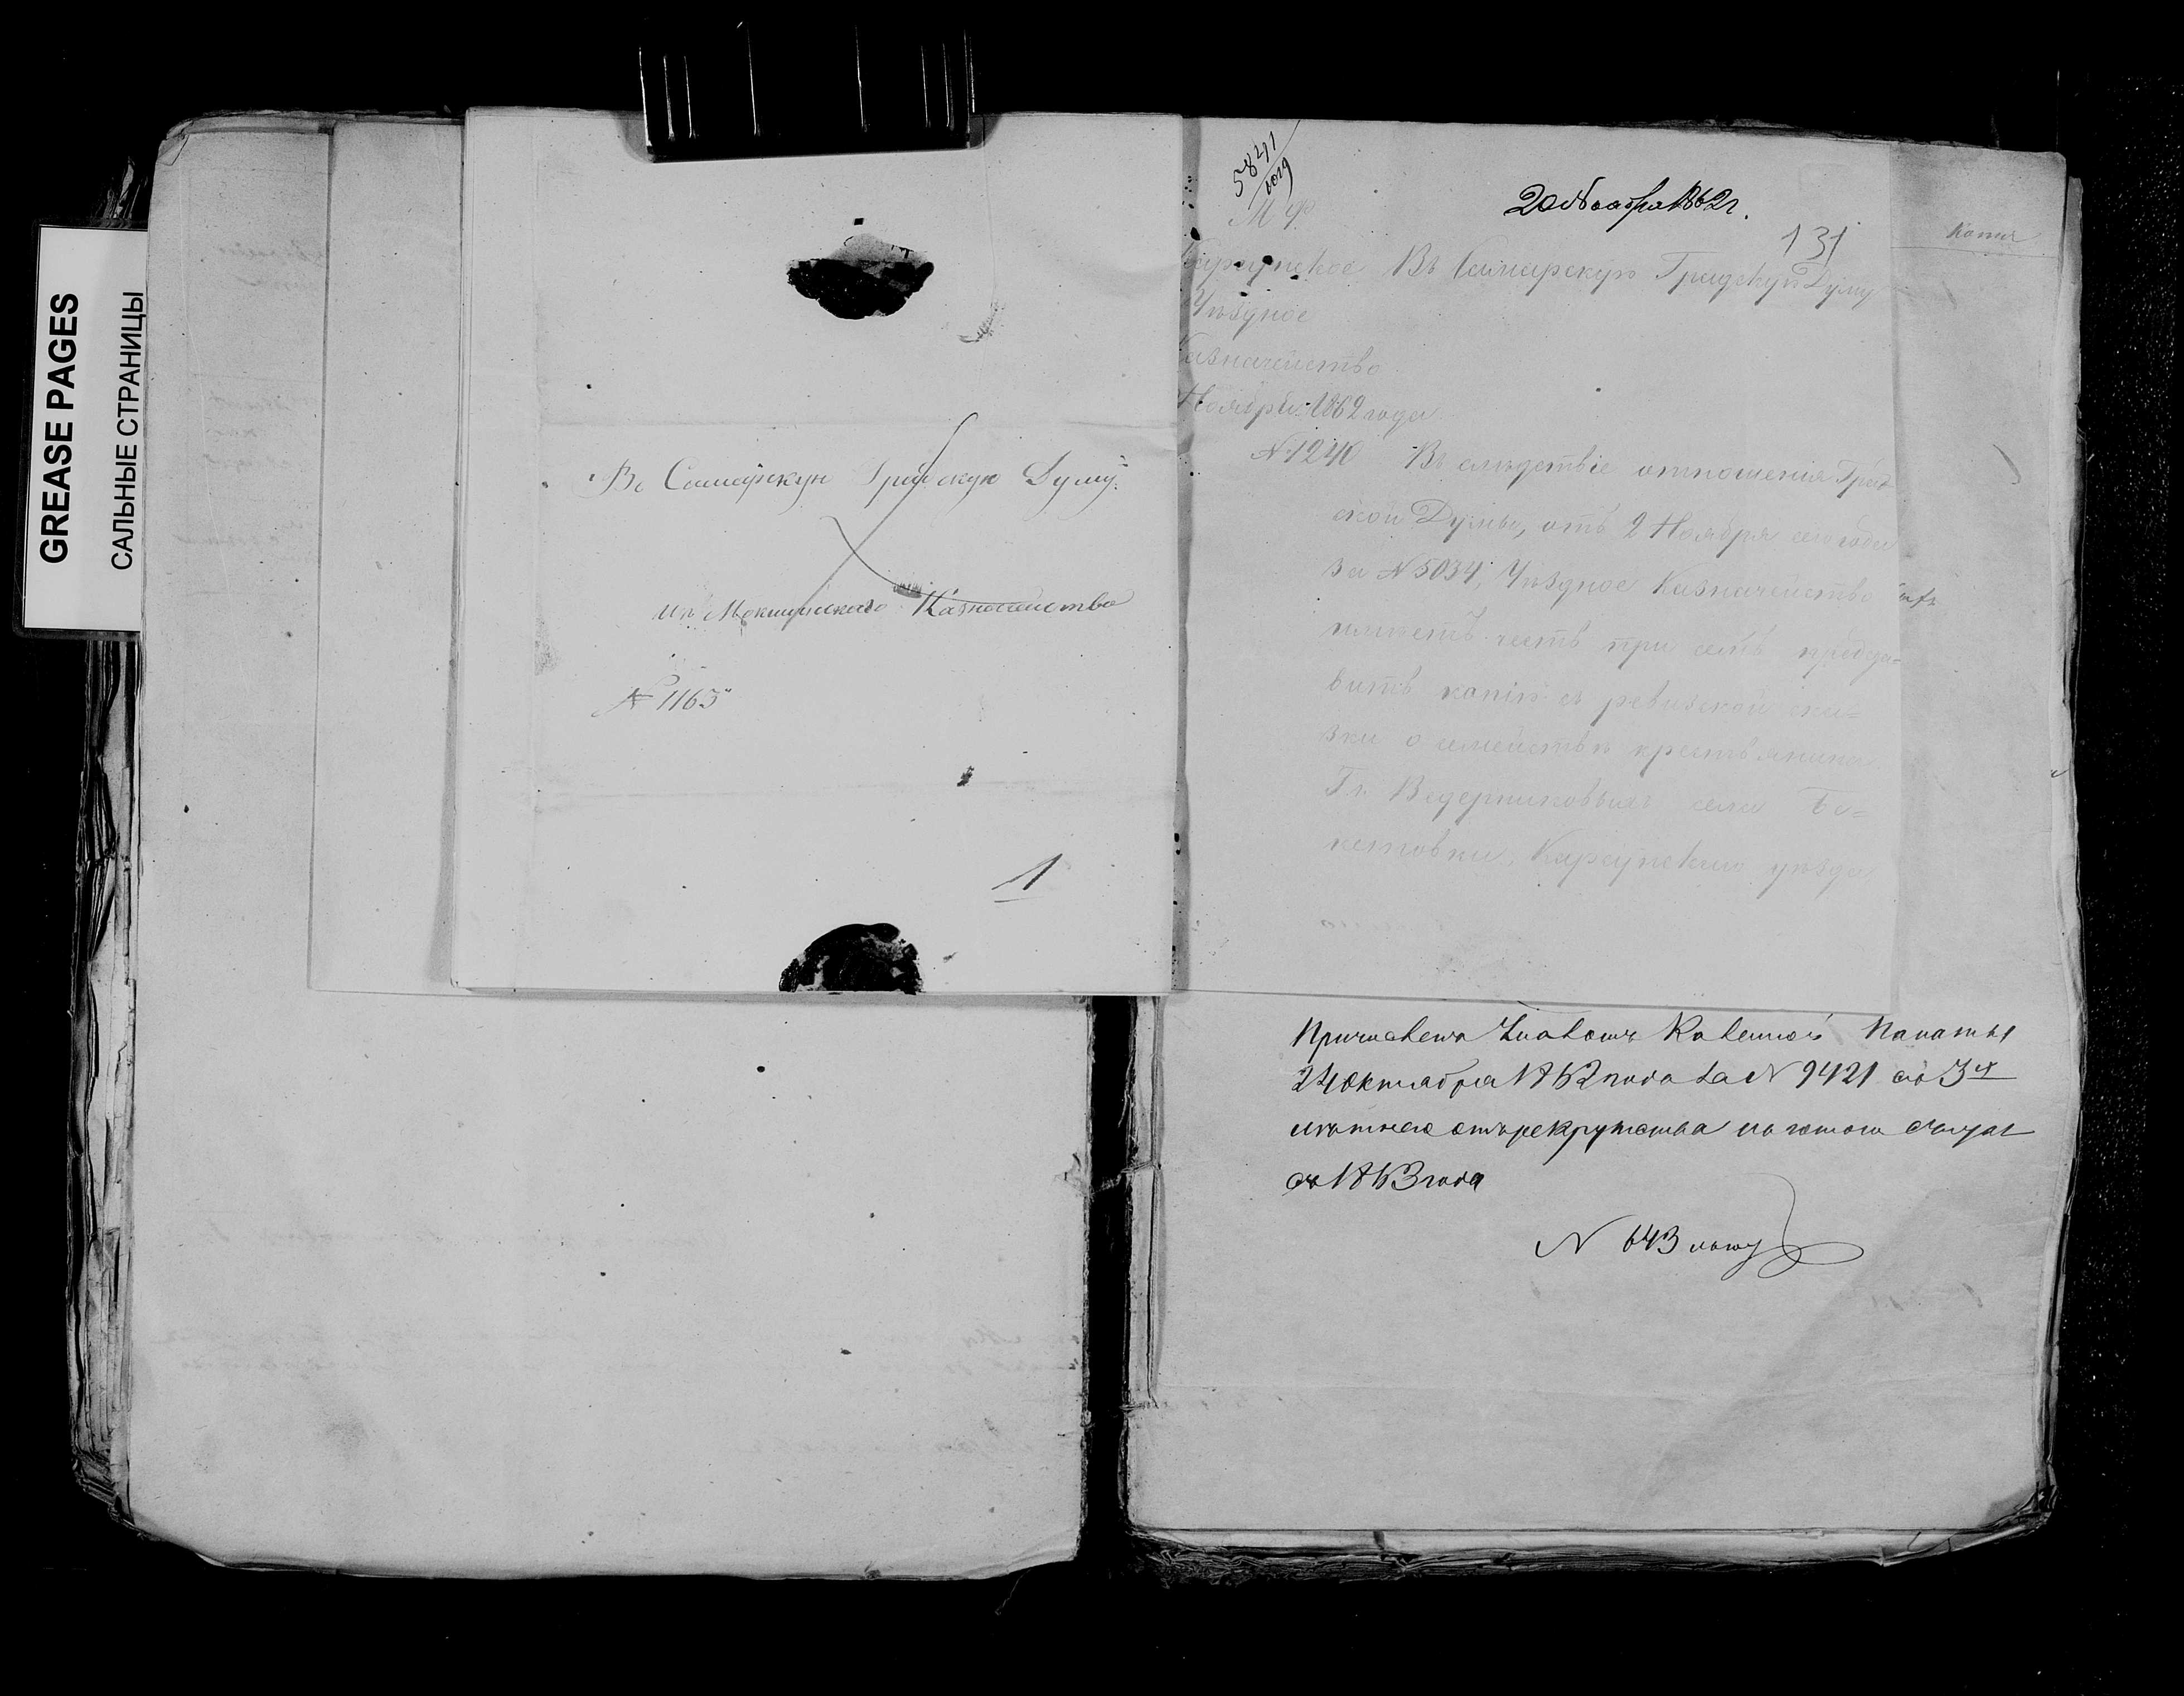 GREASE PAGES
САЛЬНЫЕ СТРАНИЦЫ
Въ Самарскую Градскую Думу.
изъ Мокшанскаго Казначейства
№ 1165
1
5841
М Ф
20 Ноября 1862 г.
131
Копия
Карсунское
Уѣздное
Казначейство
Ноября 1862 года
№ 1240
Въ Самарскую Градскую Думу
Въ слѣдствіе отношенія Град-
ской Думы, отъ 2 Ноября сего года
за № 5034, Уѣздное Казначейство
имѣетъ честь при семъ предста-
вить копію съ ревизской ска-
зки о семействѣ крестьянина
Гг. Ведерниковыхъ села
Карсунскаго уѣзда
Причислена Указомъ Казенной Палаты
24 Октября 1862 года за № 9421 со 3х
лѣтнею отъ рекрутства льготою считая
съ 1863 года
№ 643